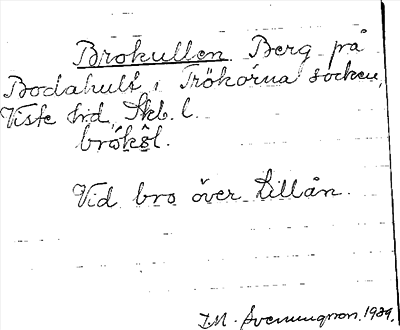 Brokullen Berg på
Bodahult i Trökörna socken,
Viste hd, Skb. l.
brókə̂l.
Vid bro över Lillån.
I.M. Svenungsson. 1929.